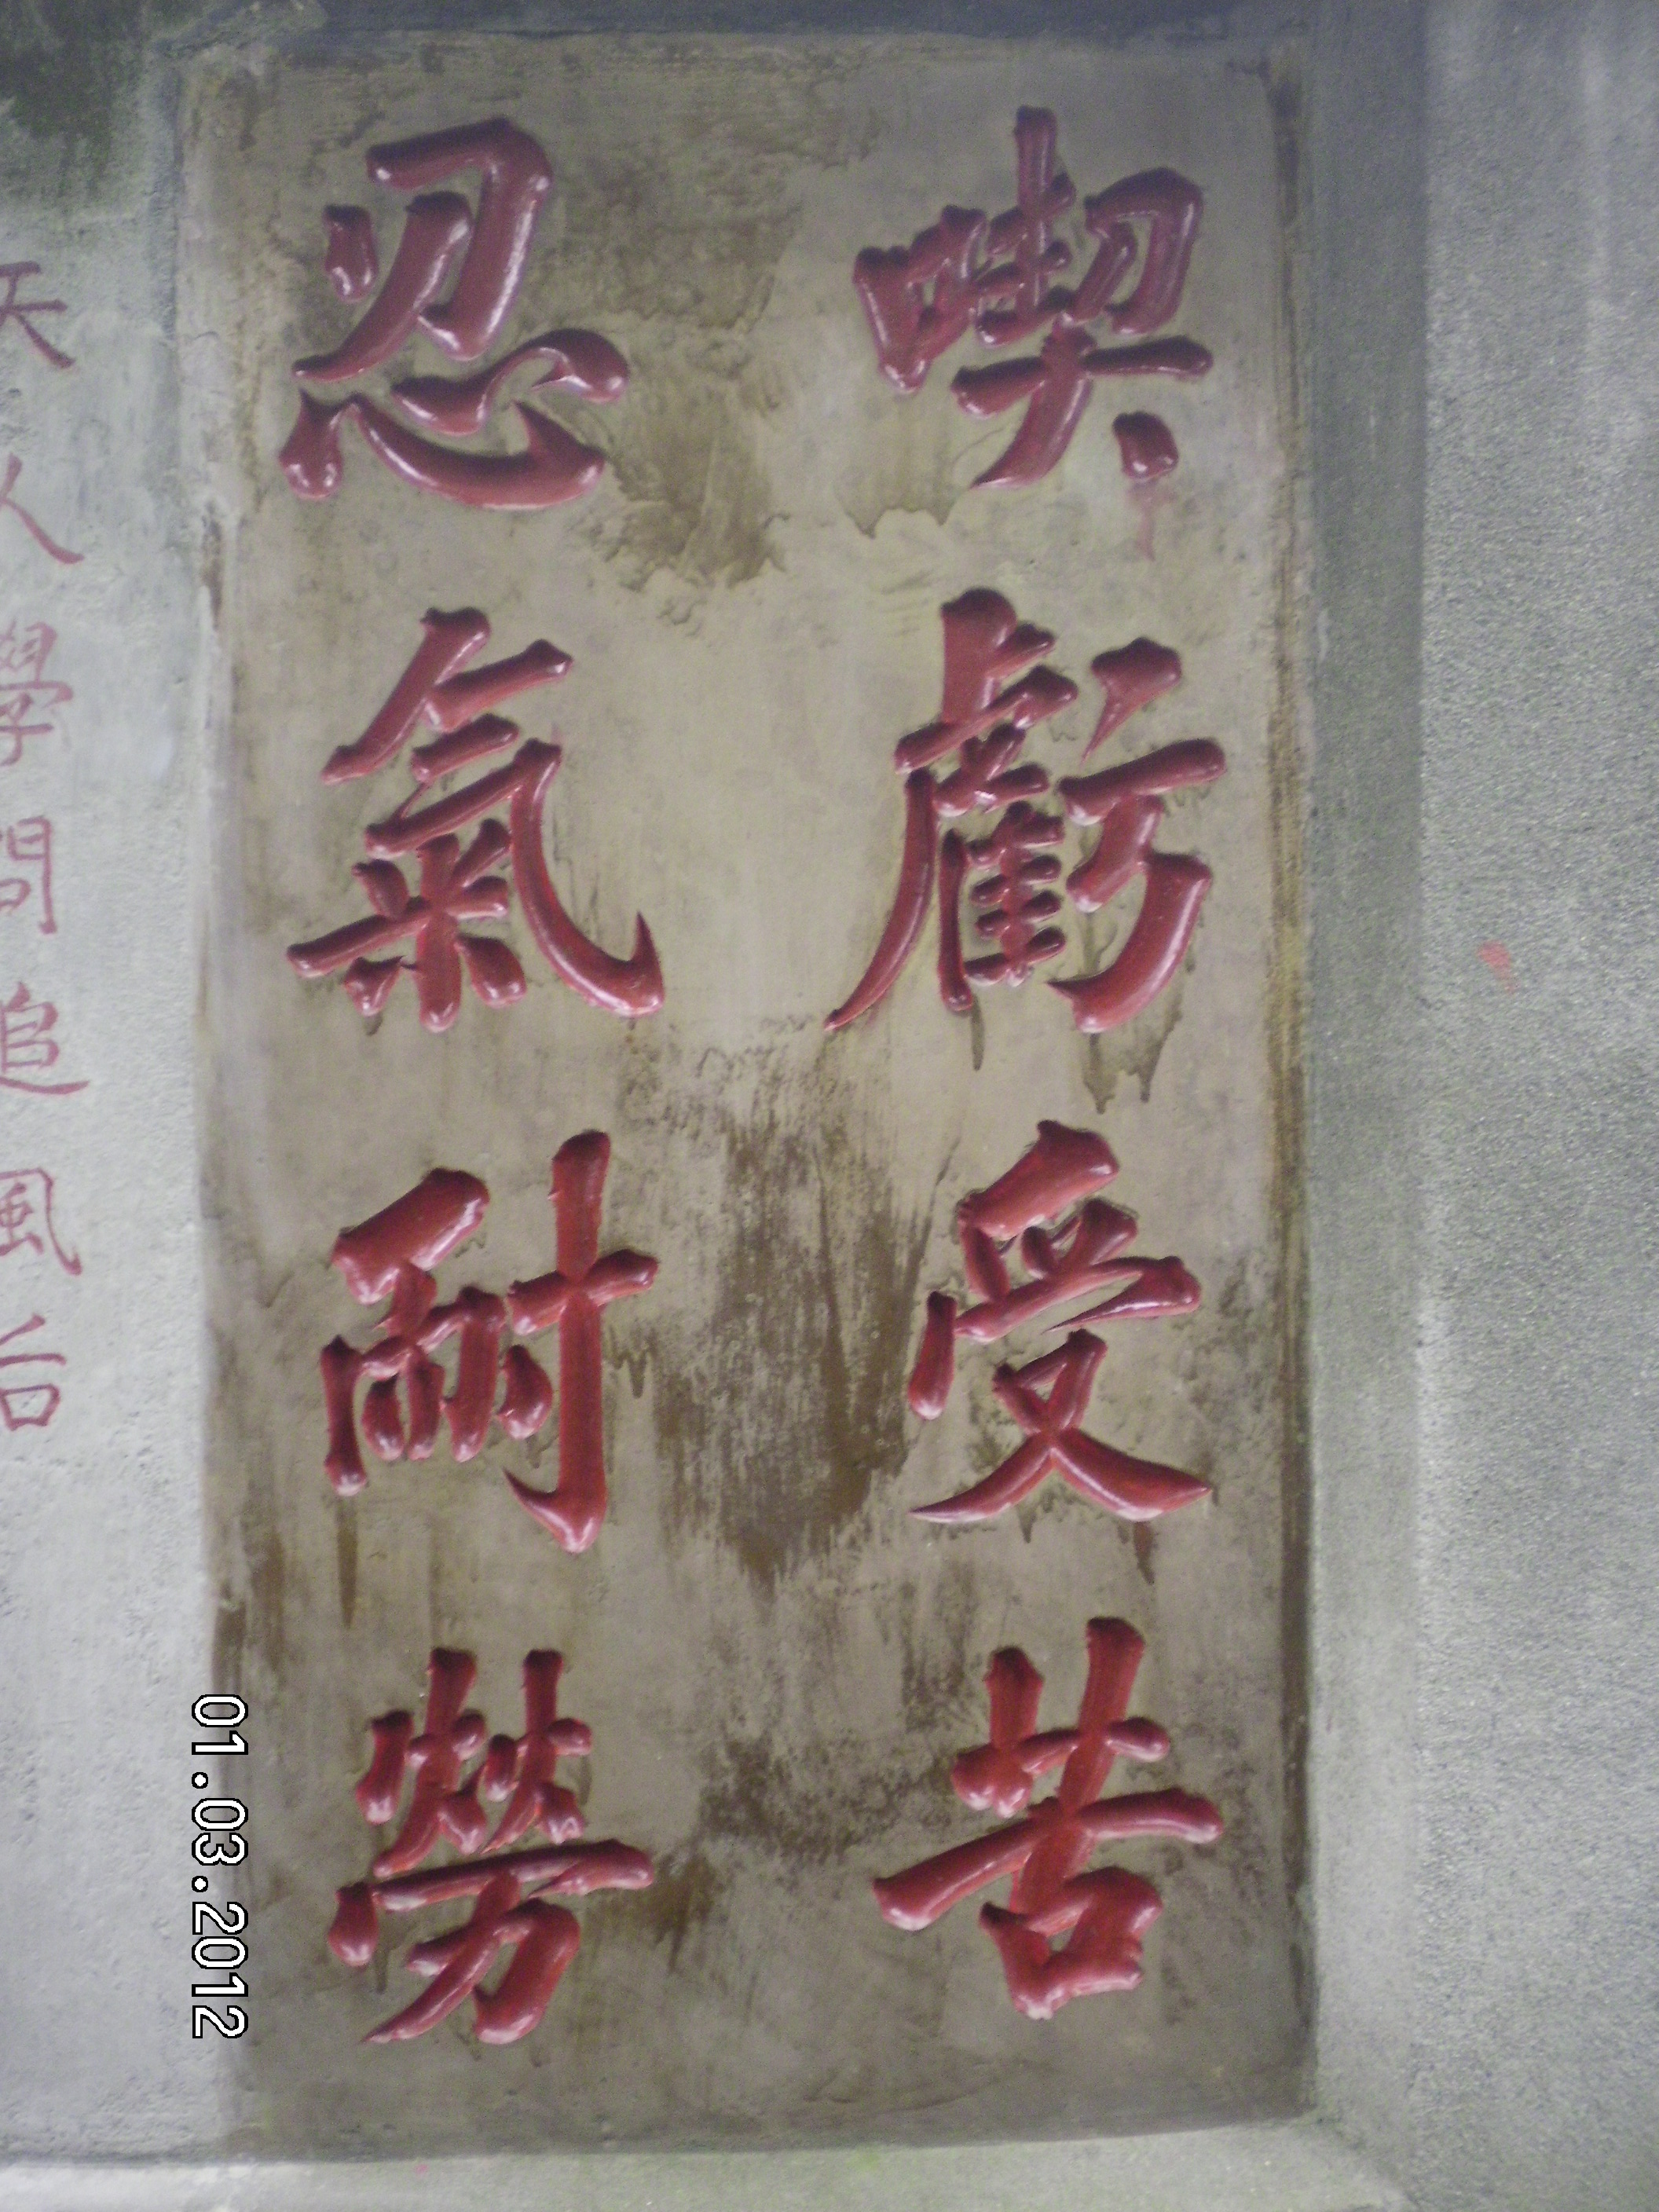 喫虧受苦
忍氣耐勞
天人學問追風
01.03.2012